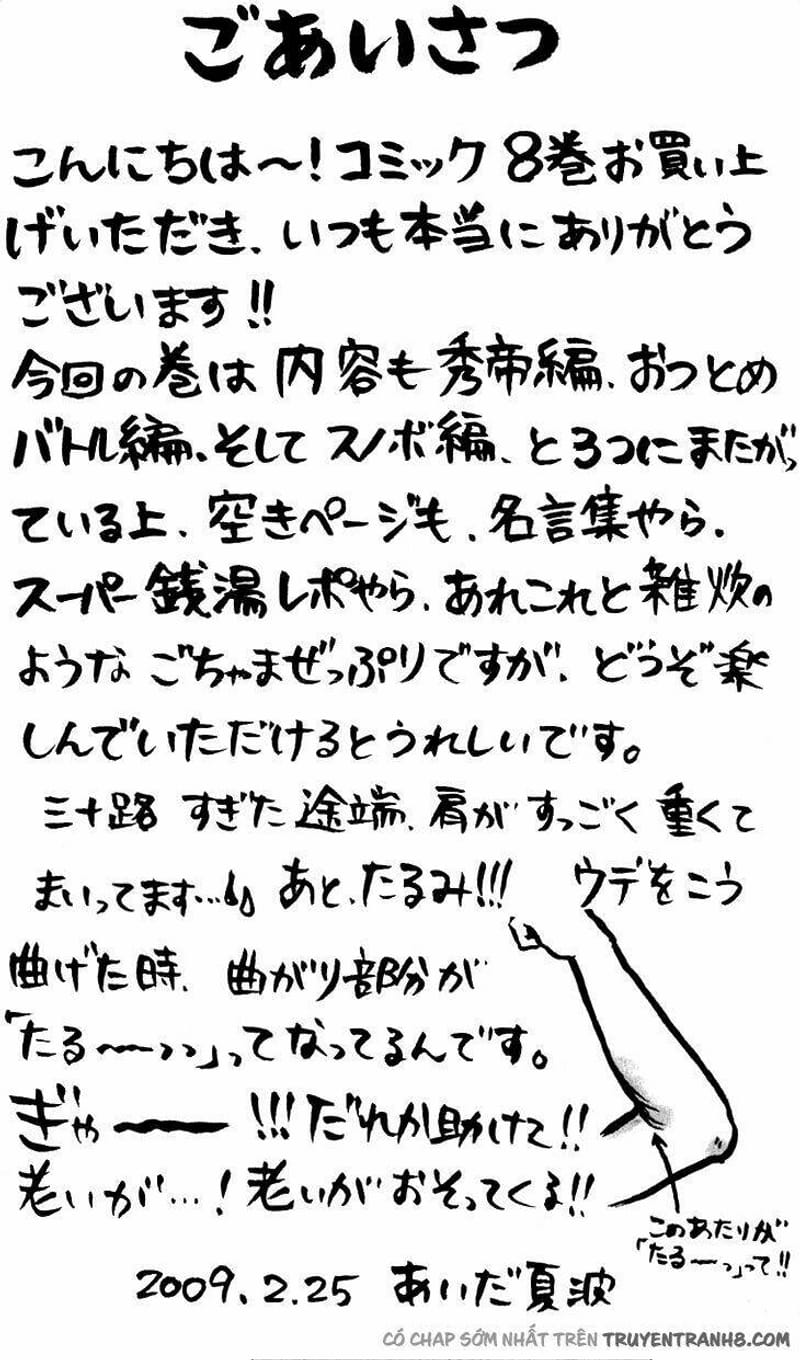 ごあいさつ
こんにちは〜!コミック8巻お買い上
げいただき、いつも本当にありがとう
ございます!!
今回の巻は内容も秀帝編、おつとめ
バトル編、そしてスノボ編、と3つにまたがっ
ている上、空きページも、名言集やら、
スーパー銭湯レポやら、あれこれと雑炊の
ようなごちゃまぜっぷりですが、どうぞ楽
しんでいただけるとうれしいです。
三十路すぎた途端、肩がすっごく重くて
まいってます…。あと、たるみ!!!ウデをこう
曲げた時、曲がり部分が
「たる〜〜っっ」ってなってるんです。
ぎゃーー!!!だれか助けて!!
老いが…!老いがおそってくる!!
このあたりが
「たる〜〜っ」って!!
2009.2.25 あいだ夏波
CÓ CHAP SỚM NHẤT TRÊN TRUYENTRANH8.COM